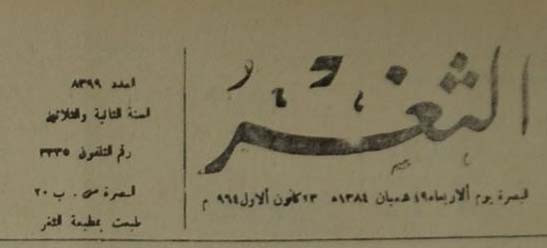 الثغر
البصرة يوم الاربعاء ١٩ شعبان ١٣٨٤ه ٢٣ كانون الاول ٩٦٤ م
العدد ٨٣٩٩
السنة الثانية والثلاثين
رقم التلفون ٣٣٣٥
البصرة ص . ب ٢٠
طبعت بمطبعة الثغر